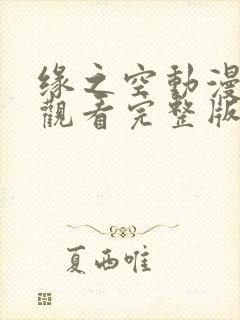 緣之空動漫
觀看完整版
夏西唯